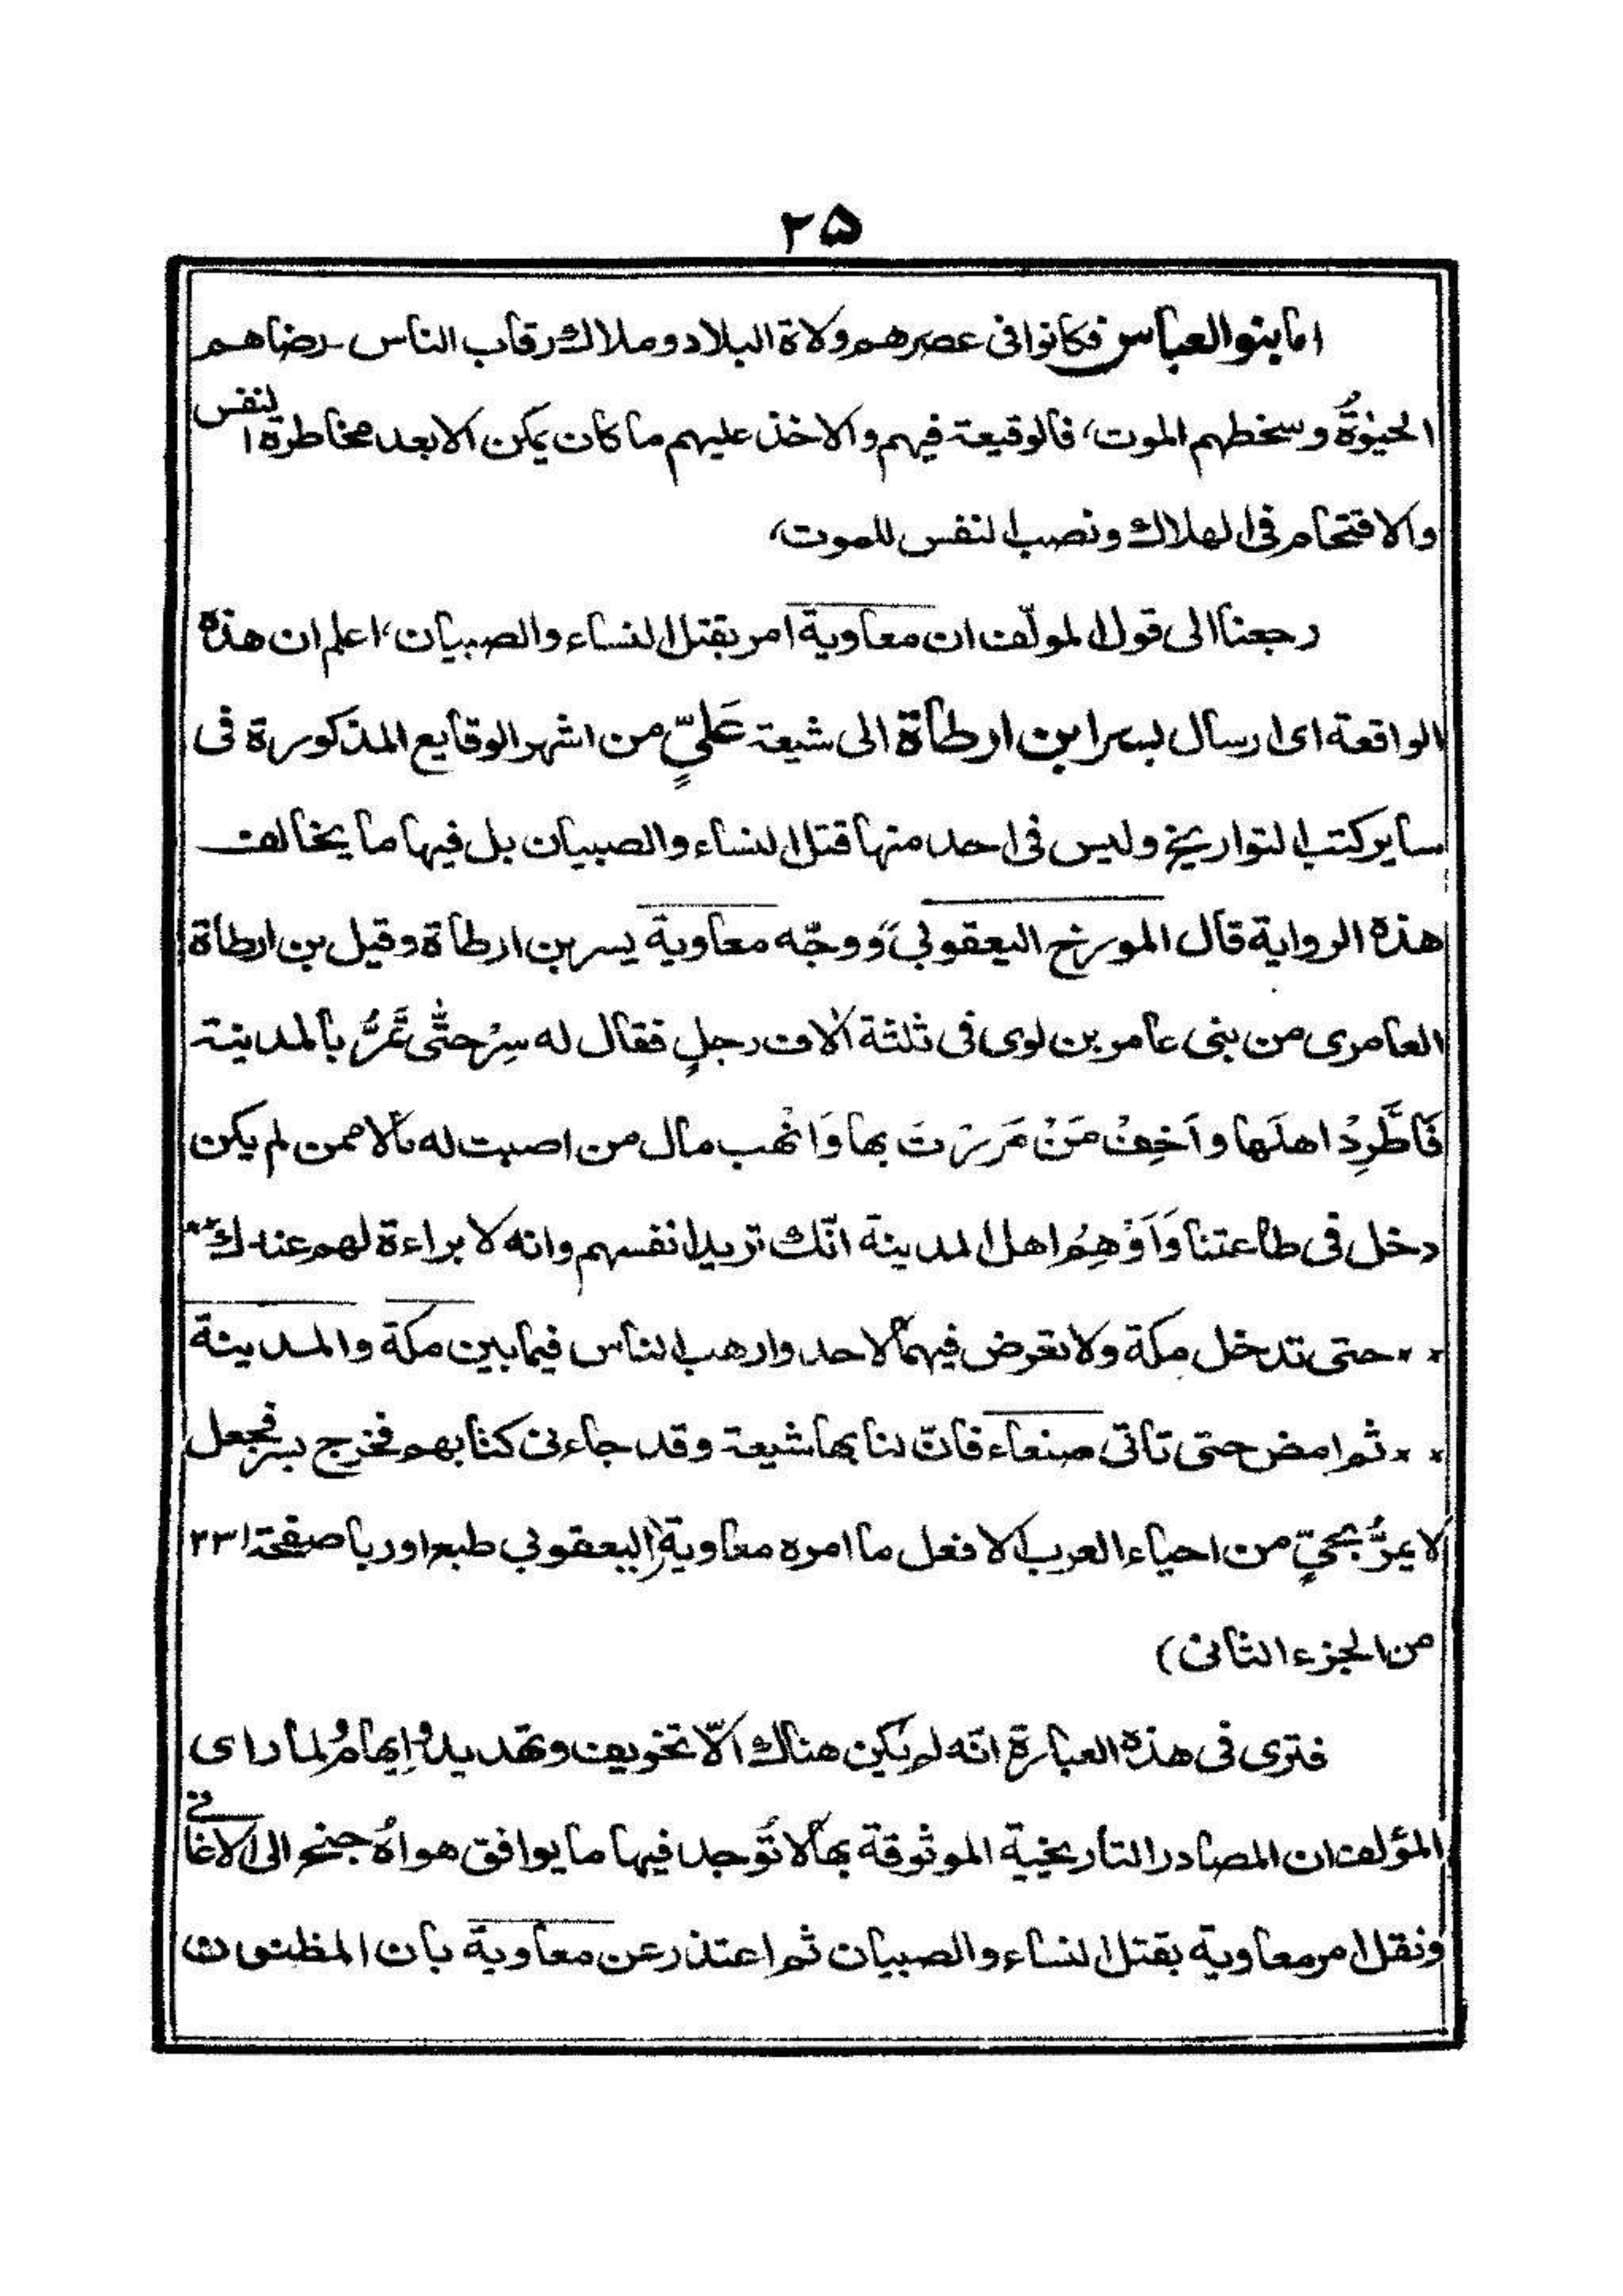 ٢٥
اما بنو العباس فكانوا فى عصرهم ولاة البلاد وملاك رقاب الناس رضاهم
الحيوٰةُ وسخطهم الموت، فالوقيعة فيهم والاخذ عليهم ما كان يمكن الا بعد مخاطرة النفس
والاقتحام فى الهلاك ونصب النفس للموت،
رجعنا الى قول المولّف ان معاوية امر بقتل النساء والصبيان، اعلم ان هذه
الواقعة اى ارسال بسر ابن ارطاة الى شيعة عَلىٍّ من اشهر الوقايع المذكورة فى
ساير كتب التواريخ وليس فى احد منها قتل النساء والصبيان بل فيها ما يخالف
هذه الرواية قال المورخ اليعقوبى "ووجّه معاوية يسر بن ارطاة وقيل بن ارطاة
العامرى من بنى عامر بن لوى فى ثلثة اٰلاف رجلٍ فقال له سِرْ حتّٰى تَمُرَّ بالمدينة
فَاطَّرِدْ اهلَها واَخِفْ مَنْ مَرَرْتَ بها وَانْهب مال من اصبت له مالا ممن لم يكن
دخل فى طاعتنا وَاَوْهِمْ اهل المدينة انّك تريد انفسهم وانه لا براءة لهم عندك **
** حتى تدخل مكة ولا تعرض فيها لاحد وارهب الناس فيما بين مكة والمدينة
** ثم امض حتى تاتى صنعاء فانّ لنا بها شيعة وقد جاءنى كتابهم فخرج بسر فجعل
لا يمرُّ بحىٍّ من احياء العرب الا فعل ما امره معاوية" (اليعقوبى طبع اوربا صفحة ٢٣١
من الجزء الثانى)
فترى فى هذه العبارة انّه لم يكن هناك الّا تخويف وتهديد وإيهامٌ ولما راى
المؤلف ان المصادر التأريخية الموثوقة بها لا تُوجد فيها ما يوافق هواهُ جنح الى الاغانى
ونقل امر معاوية بقتل النساء والصبيان ثم اعتذر عن معاوية بان المظنون